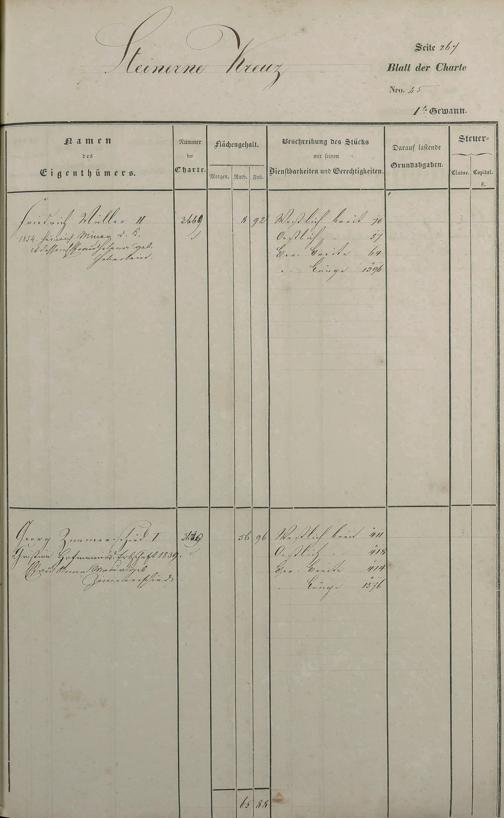 Steinerne Kreuz
Seite 267
Blatt der Charte
Nro. 25
1te Gewann.
Namen
des
Eigenthümers.
Nummer
der
Charte.
Flächengehalt.
Morgen. Ruth. Fuß.
Beschreibung des Stücks
mit seinen
Dienstbarkeiten und Gerechtigkeiten.
Darauf lastende
Grundabgaben.
Steuer-
Classe. Capital.
fl.
Friedrich Müller II
1854. Heinrich
geb.
92
Westlich breit 70
Oestlich 57
Ger. Breite 64
Länge 1396
Georg Zimmerschied I
Christian Hofmanns Erbschaft 1839.
Zimmerschied.
56 96
Westlich breit 411
Oestlich 418
Ger. Breite 414
Länge 1376
65 88